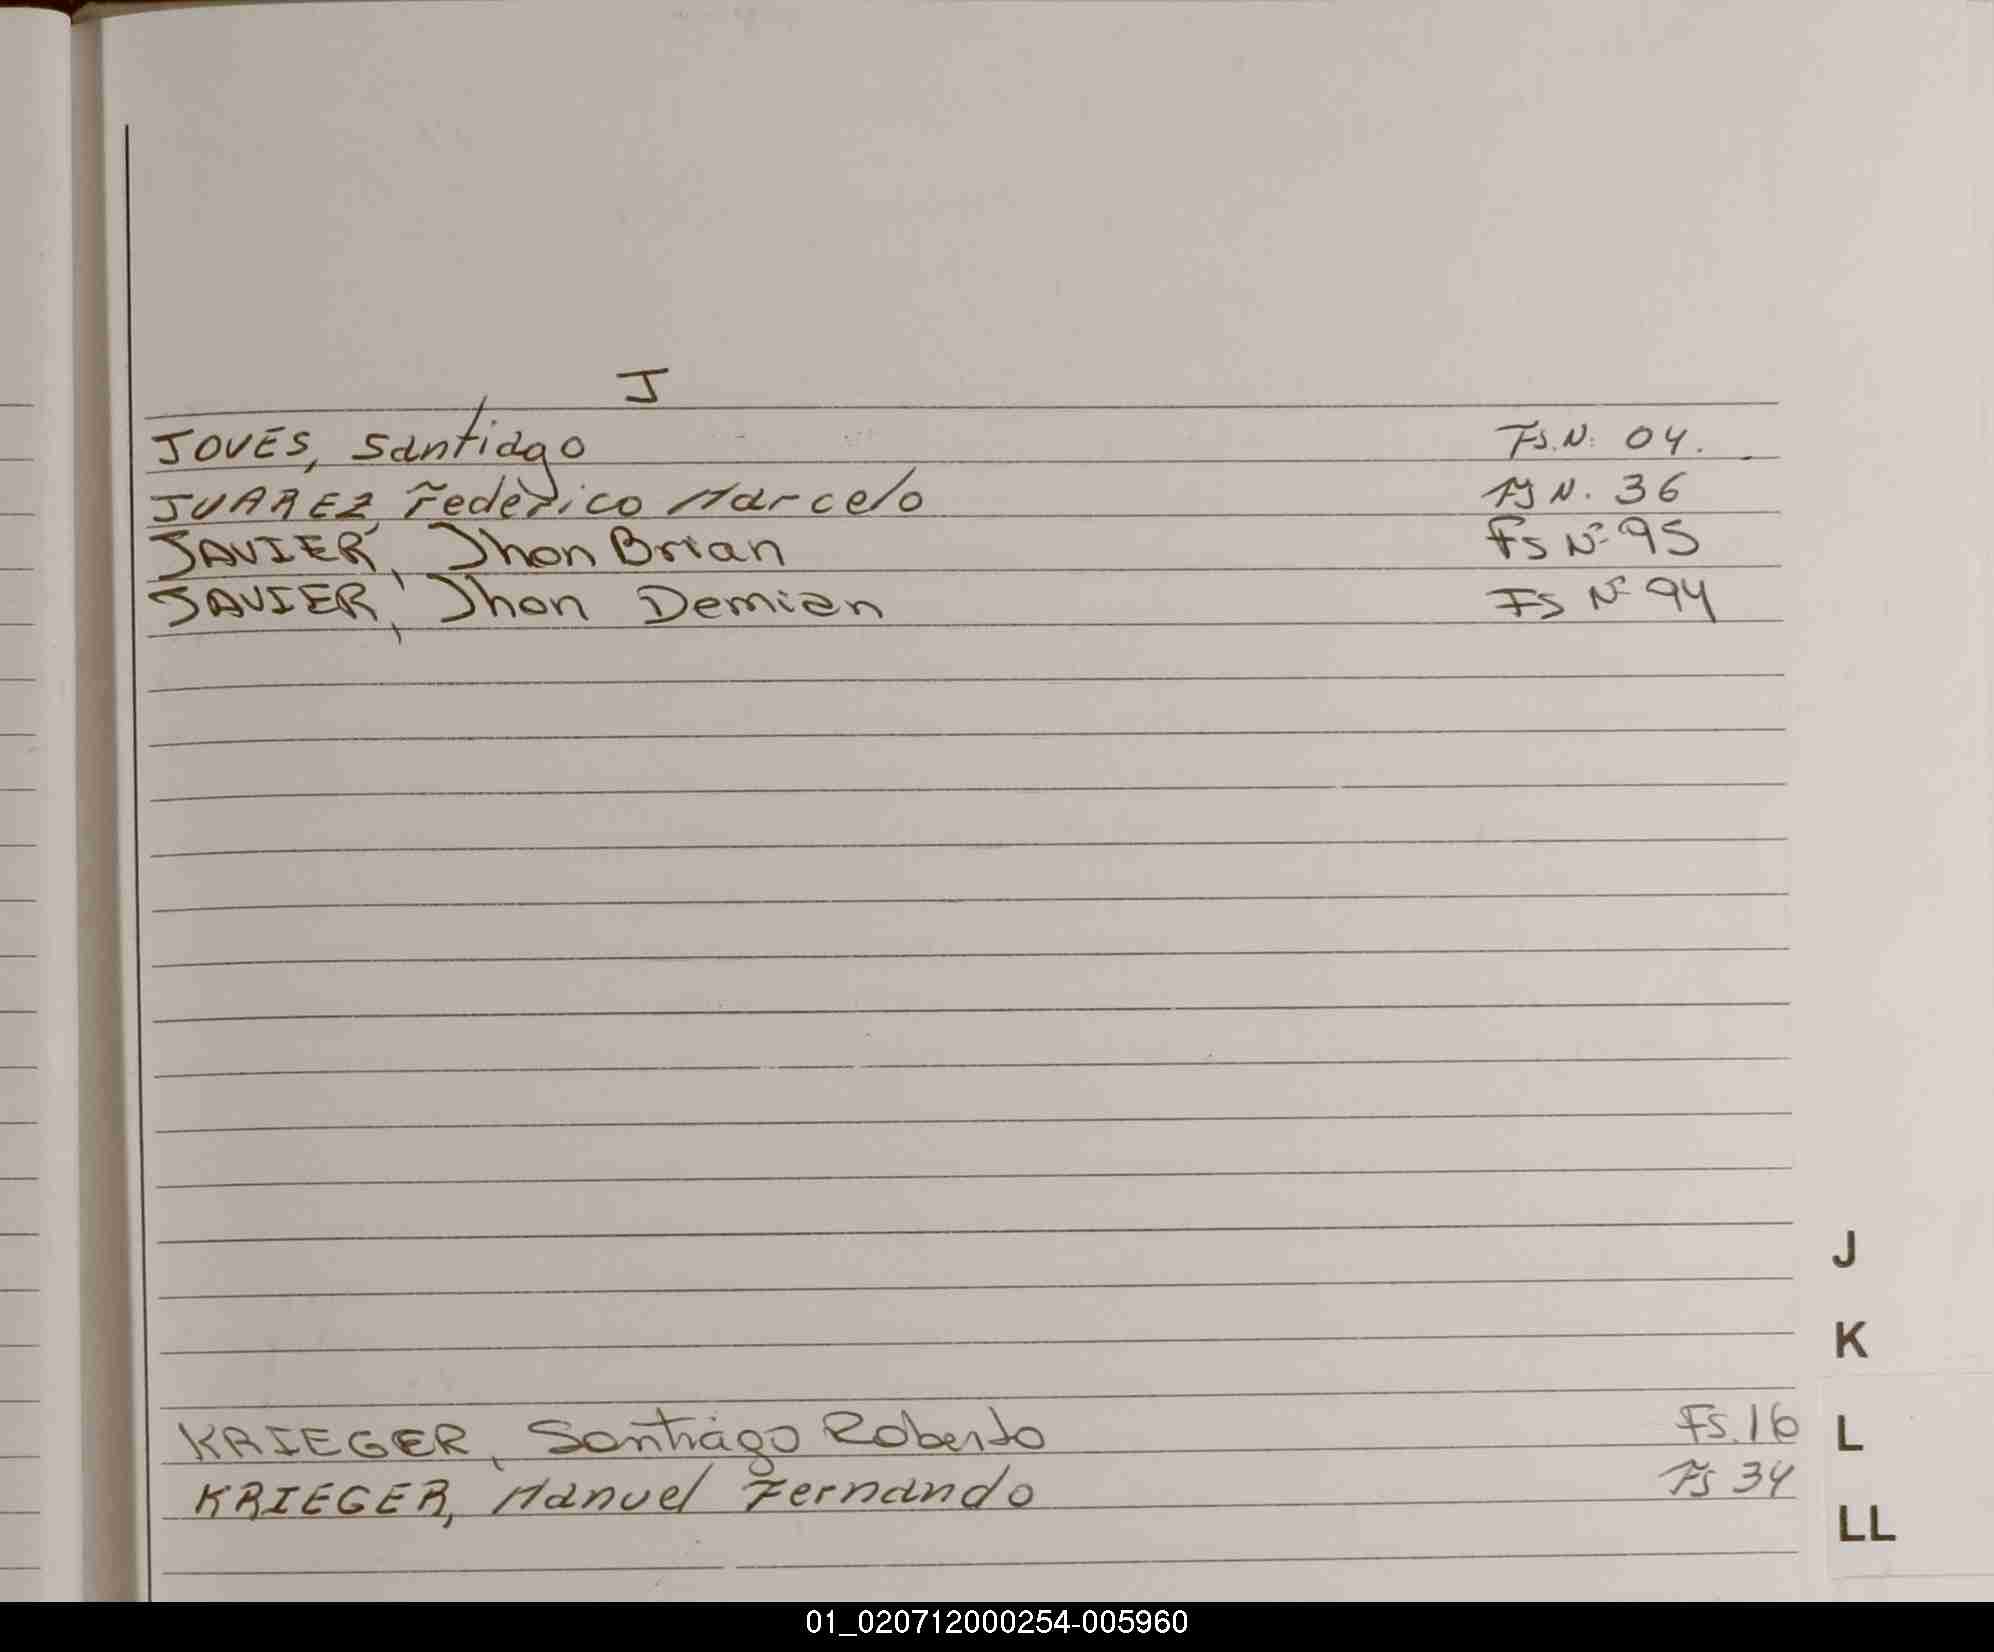 J
JOVES, Santiago Fs.N. 04.
JUAREZ, Federico Marcelo Fs N. 36
JAVIER, Jhon Brian Fs Nº 95
JAVIER, Jhon Demian Fs Nº 94
J
K
KRIEGER, Santiago Roberto Fs. 16
L
KRIEGER, Manuel Fernando Fs 34
LL
01_020712000254-005960